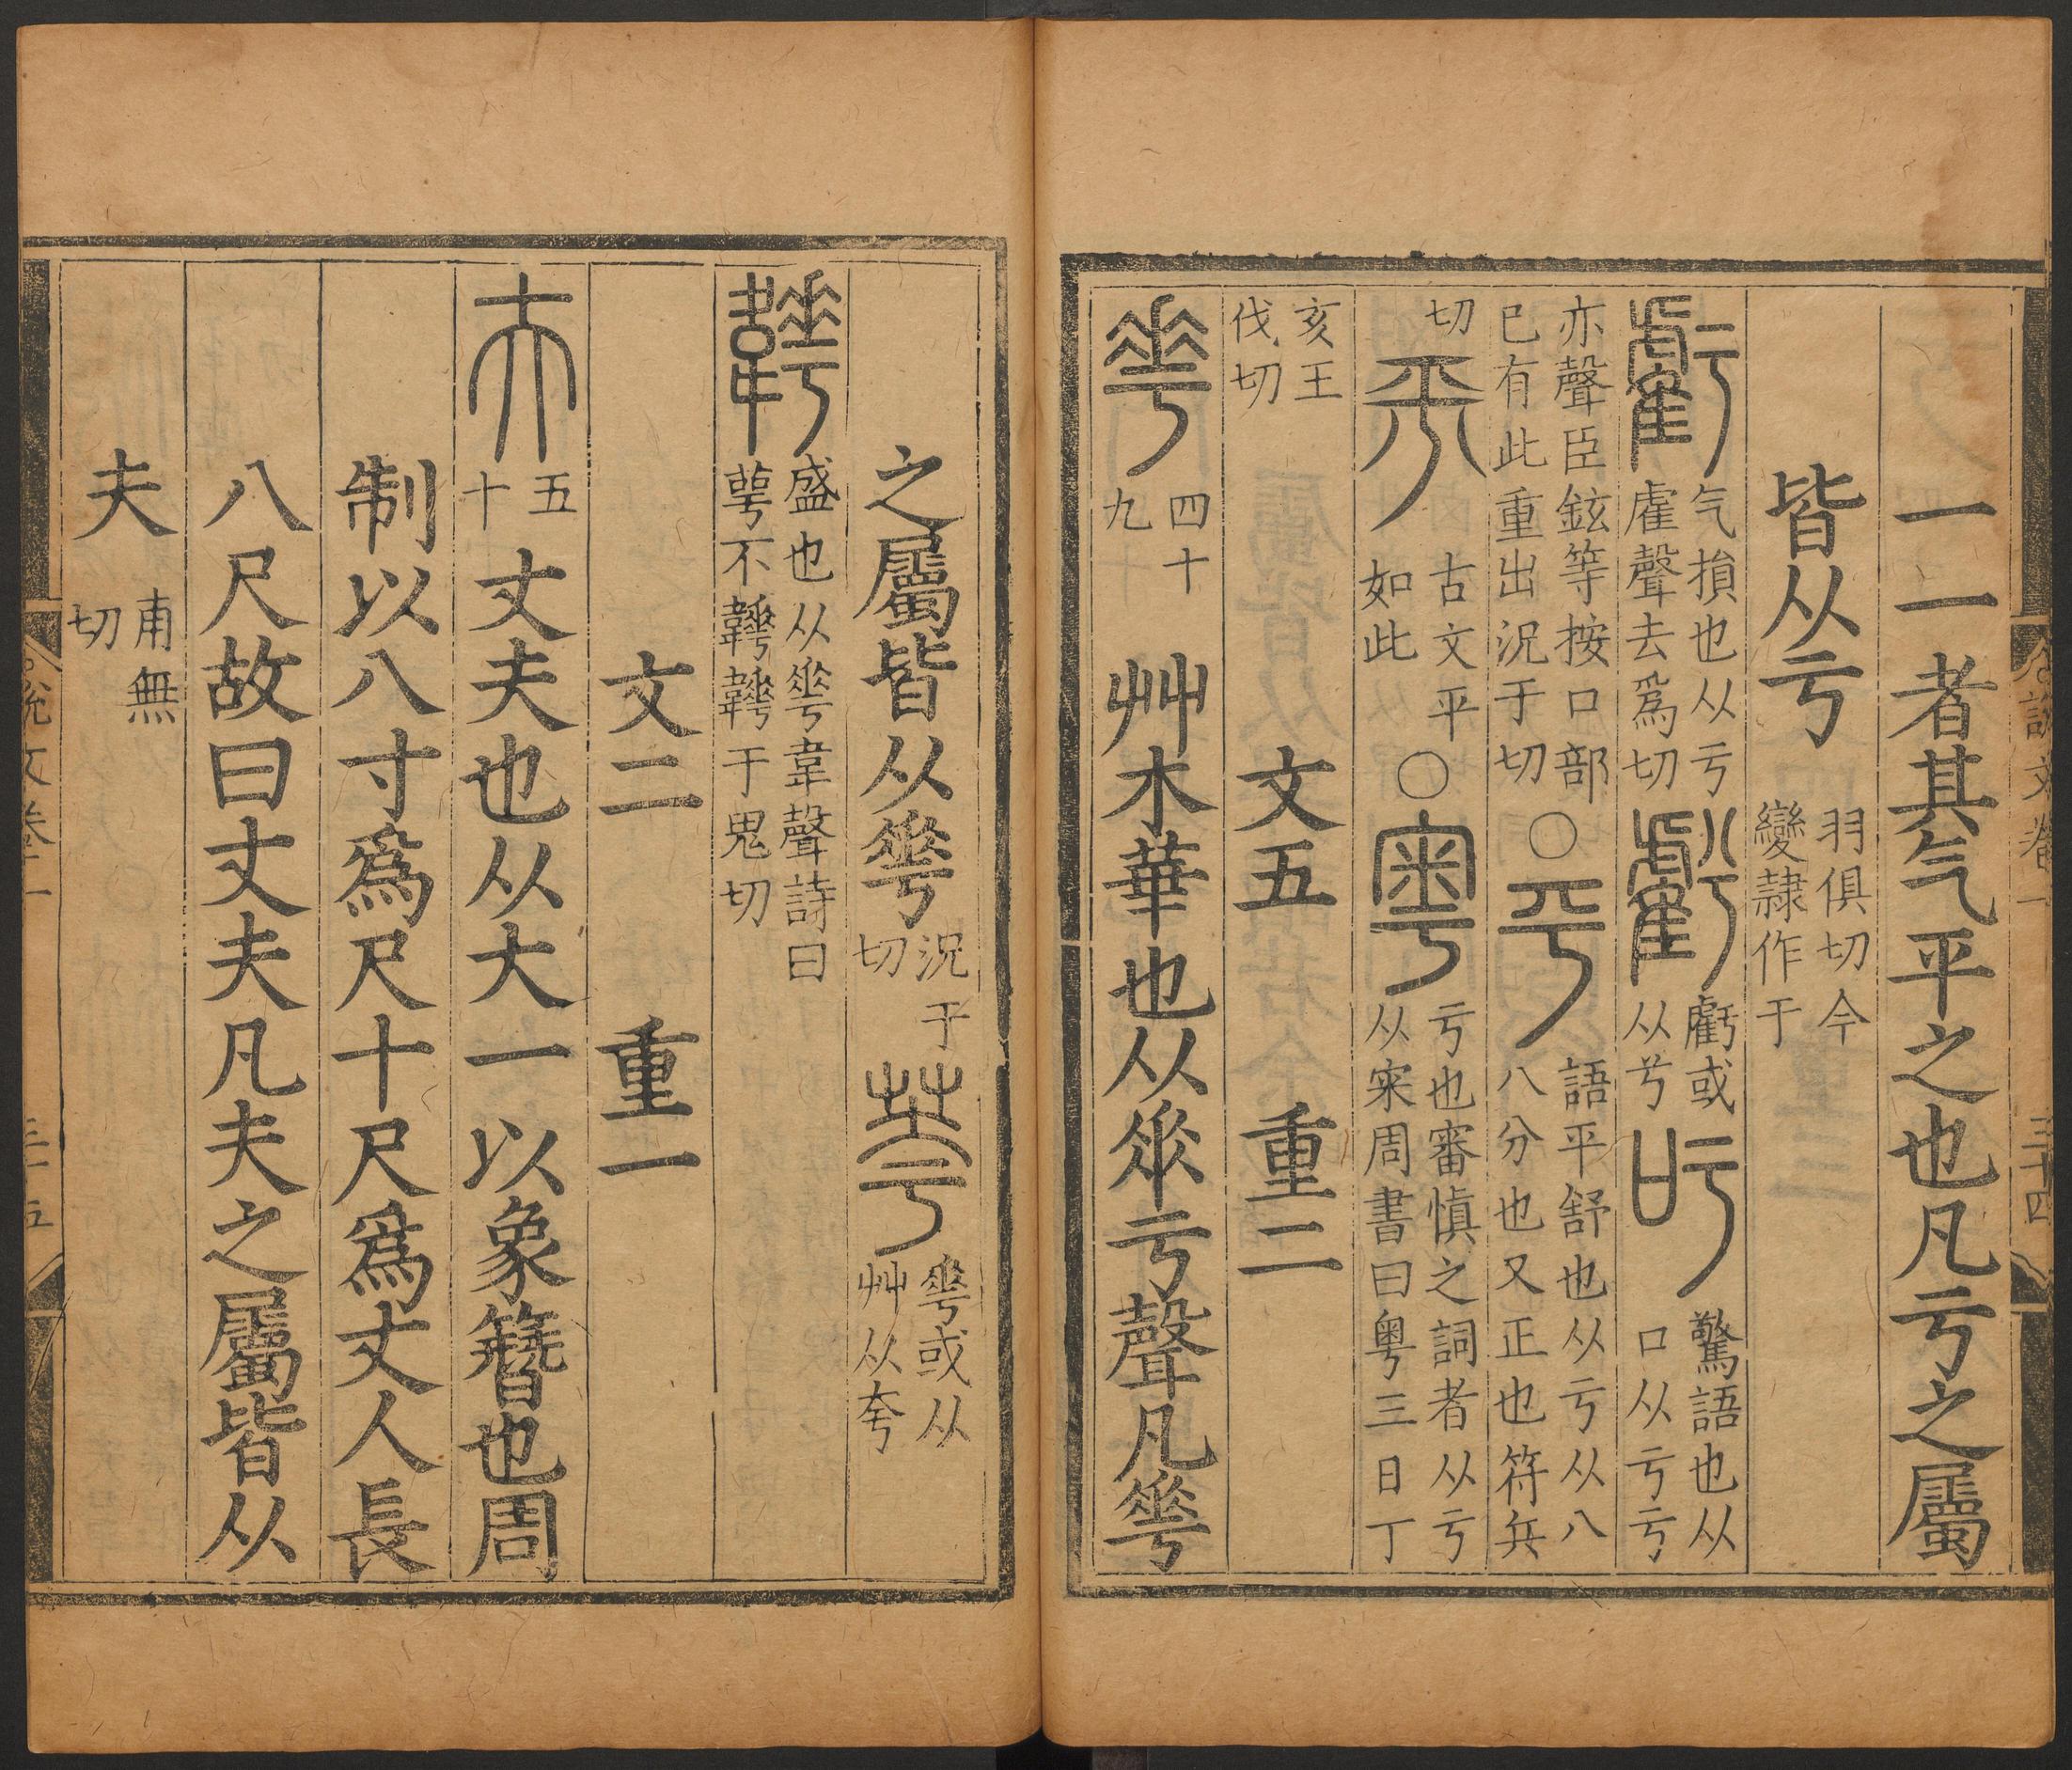 一一者其气平之也凡亏之屬
皆从亏羽俱切今變隸作于
虧气損也从亏雐聲去爲切虧虧或从兮吁驚語也从口从亏亏
亦聲臣鉉等按口部已有此重出況于切〇平語平舒也从亏从八八分也又正也符兵
切平古文平如此〇粵亏也審慎之詞者从亏从宷周書曰粵三日丁
亥王伐切
文五 重二
𠌶四十九艸木華也从𠂹亏聲凡𠌶
之屬皆从𠌶況于切荂𠌶或从艸从夸
䪮盛也从𠌶韋聲詩曰萼不䪮䪮于鬼切
文二 重一
夫五十丈夫也从大一以象簪也周
制以八寸爲尺十尺爲丈人長
八尺故曰丈夫凡夫之屬皆从
夫甫無切
說文卷十一
三十四
說文卷十一
三十五